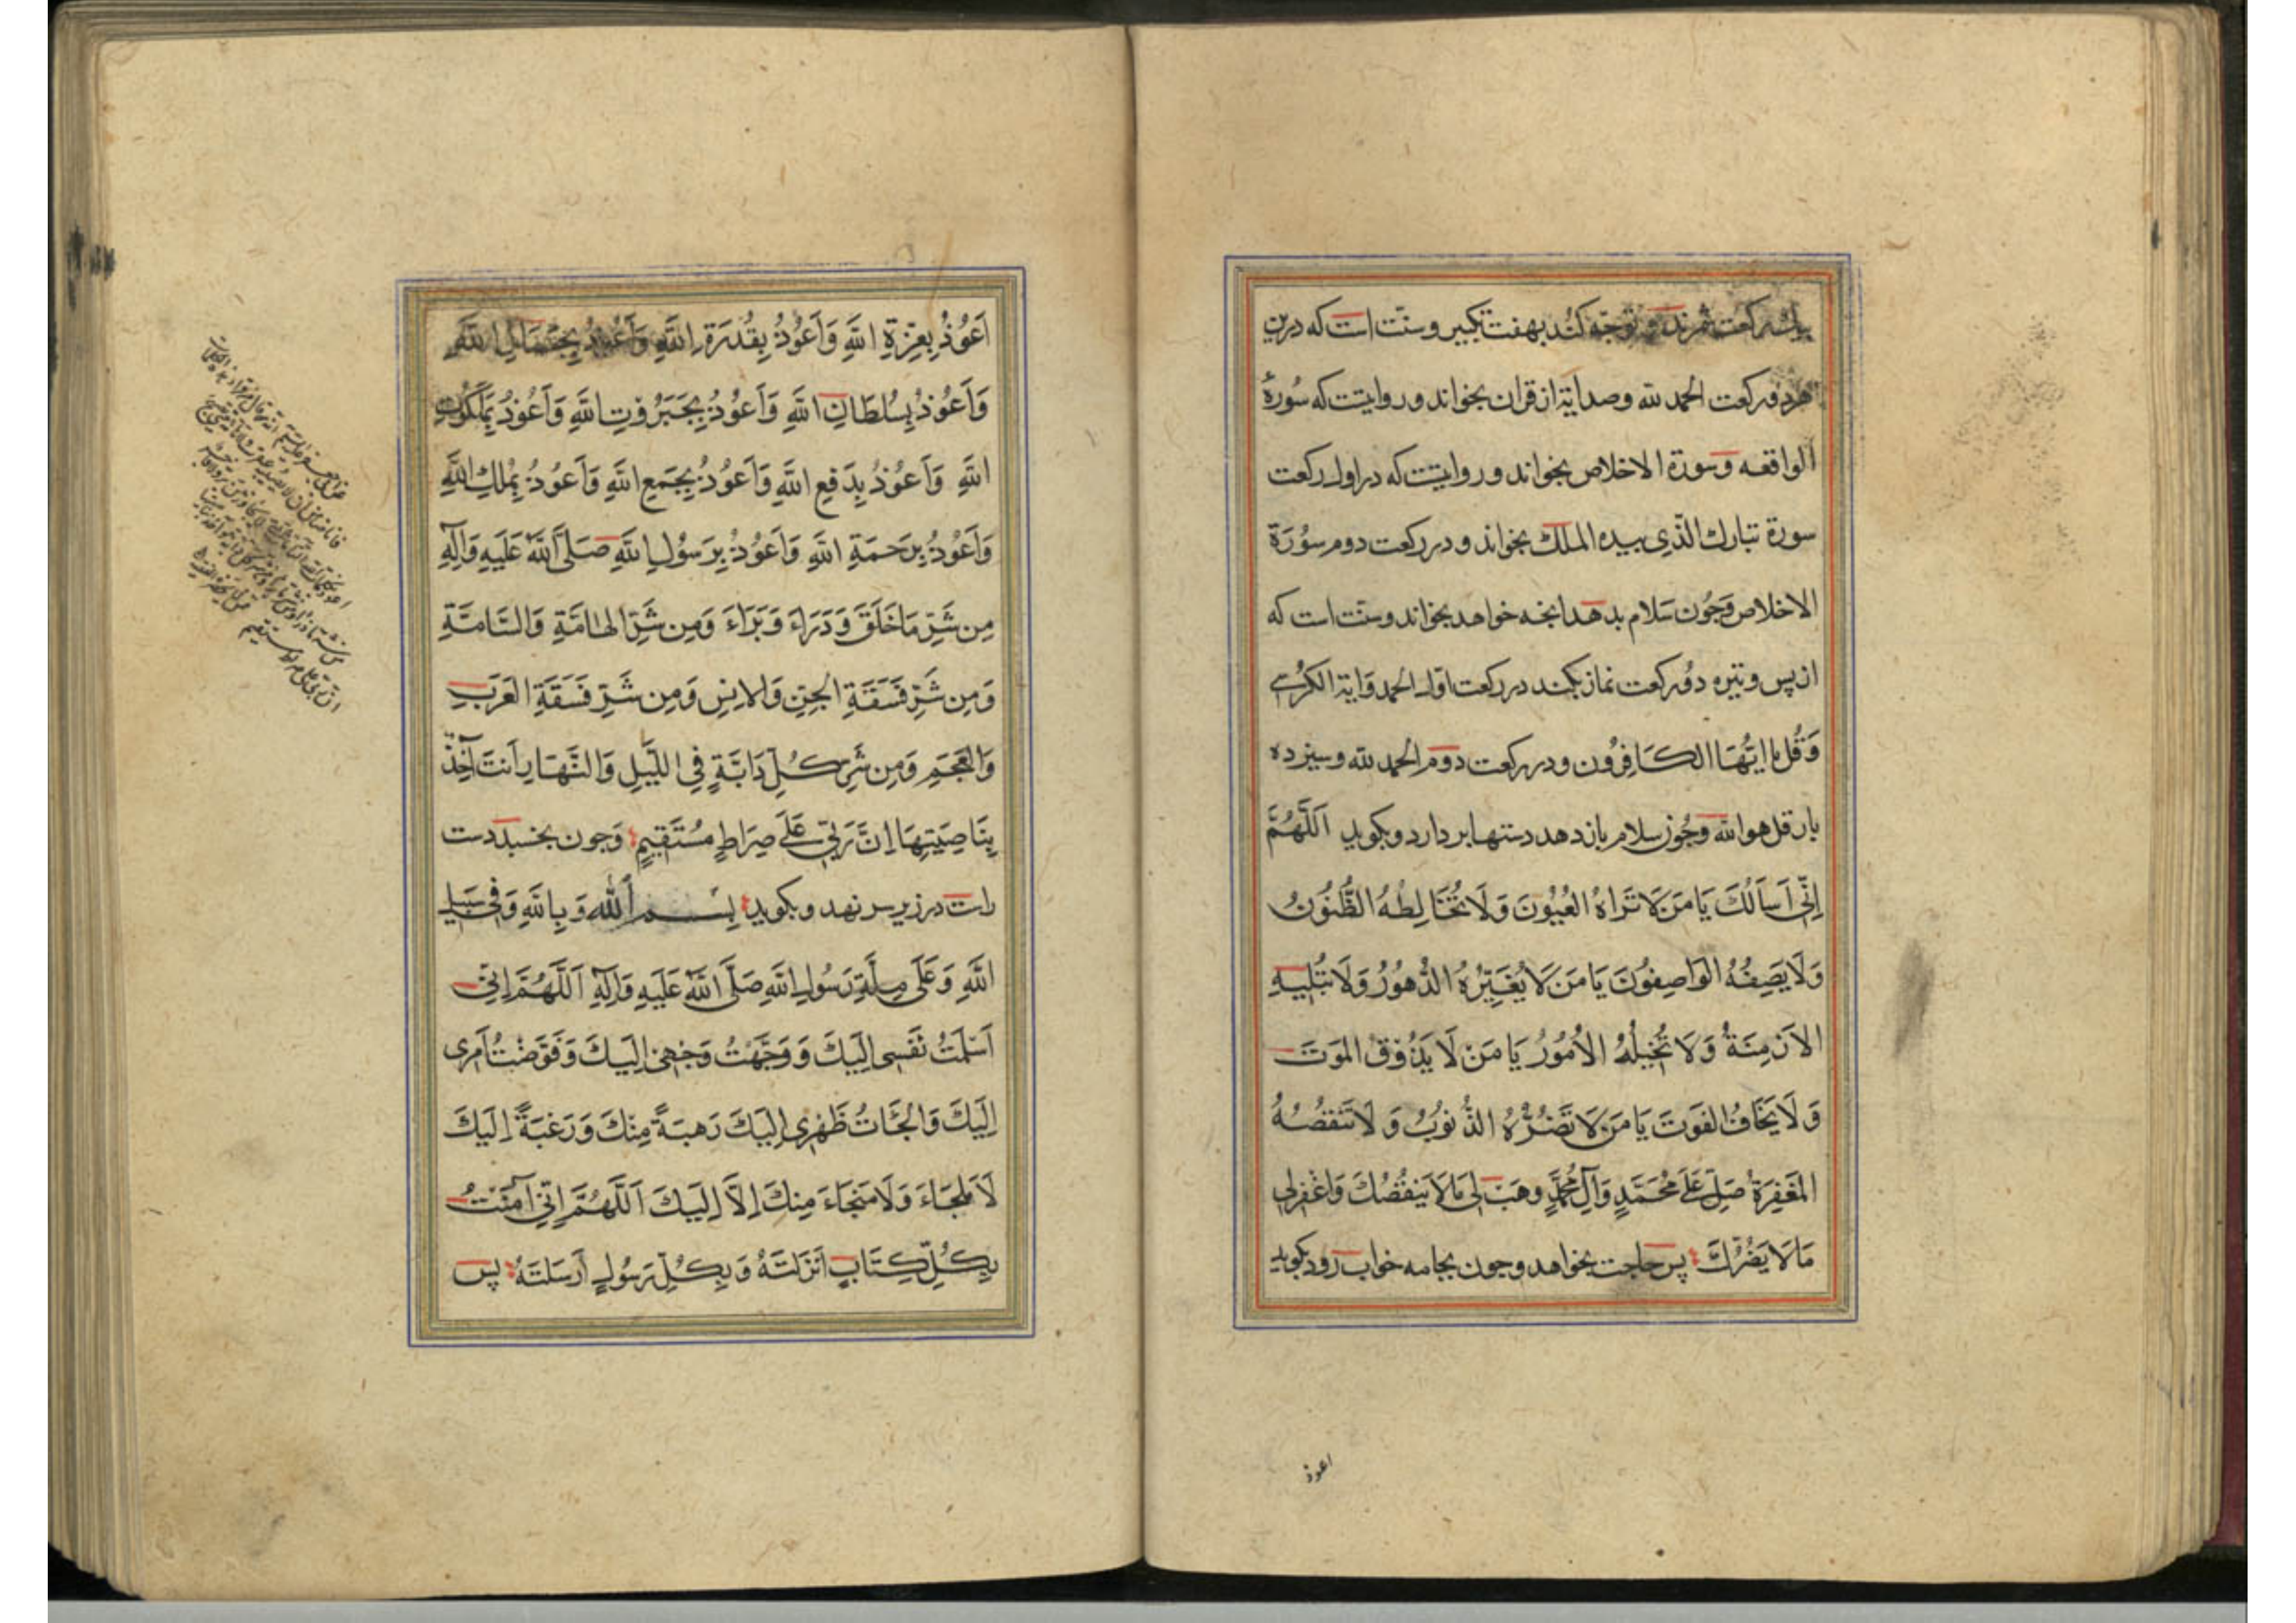 بیك ركعت شمرند و توجّه كنُند بهفت تكبیر و سنّت است كه درین
هر دو ركعت الحمد لله و صد آیة از قران بخواند و روایتست كه سُورهٔ
الواقعه و سورة الاخلاص بخواند و روایتست كه در اول ركعت
سورة تبارك الّذی بیده الملك بخواند و در ركعت دوم سوُرَة
الاخلاص وَجُون سَلام بدهد انجه خواهد بخواند و سنّت است كه
از پس وتیره دوُ ركعت نماز بكند در ركعت اوّل الحمد وَایة الكرُسی
وَقُل یا ایُّهَا الكَافِرُون و در ركعت دوم الحمد لله و سیزده
بار قل هو الله وَجُون سلام باز دهد دستها بر دارد و بكوید اَللَّهُمَّ
اِنّی اَسأَلُكَ یَا مَن لَا تَرَاهُ العُیُونَ وَلَا تُخَالِطُهُ الظُّنُونُ
وَلَا یَصِفُهُ الوَاصِفُونَ یَا مَن لَا یُغَیِّرُهُ الدُّهوُرُ وَلَا تُبلِیهِ
الاَزمِنَةُ وَلَا تُحِیلُهُ الاُمُورُ یَا مَنْ لَا یَذُوقُ المَوتَ
وَلَا یَخَافُ الفَوتَ یَا مَن لَا تَضُرُّهُ الذُّنوُبُ وَلَا تَنقُصُهُ
المَغفِرَةُ صَلِّ عَلَی مُحَمَّدٍ وَآلِ مُحَمَّدٍ وهَب لِی مَا لَا یَنقُصُكَ وَاغفِرلِی
مَا لَا یَضُرُّكَ پس حاجت بخواهد و جون بجامه خواب رود بكوید
اعوذ
اَعُوُذُ بِعِزَّةِ اللهِ وَاَعُوُذُ بِقُدرَةِ اللهِ وَاَعُوذُ بِجَمَالِ اللهِ
وَاَعُوذُ بِسُلطَانِ اللهِ وَاَعُوُذُ بِجَبَرُوتِ اللهِ وَاَعُوذُ بِمَلَكُوُتِ
اللهِ وَاَعُوُذُ بِدَفعِ اللهِ وَاَعُوُذُ بِجَمعِ اللهِ وَاَعُوُذُ بِمُلكِ اللهِ
وَاَعُوُذُ بِرَحمَةِ اللهِ وَاَعُوُذُ بِرَسوُلِ اللهِ صَلَی اللهُ عَلَیهِ وَآلِهِ
مِن شَرِّ مَا خَلَقَ وَذَرَاءَ وَبَرَاءَ وَمِن شَرِّ الهَامَّةِ وَالسَّامَّةِ
وَمِن شَرِّ فَسَقَةِ الجِنِّ وَالاِنسِ وَمِن شَرِّ فَسَقَةِ العَرَبِ
وَالعَجَمِ وَمِن شَرِّ كُلِّ دَابَّةٍ فِی اللَّیلِ وَالنَّهَارِ اَنتَ آخِذٌ
بِنَاصِیَتِهَا اِنَّ رَبِّی عَلَی صِرَاطٍ مُستَقِیمٍ وَجون بخسبد دست
راست در زیر سر نهد و بكوید بِسمِ اللهِ وَبِاللهِ وَفِی سَبِیلِ
اللهِ وَعَلَی مِلَّةِ رَسُولِ اللهِ صَلَّی اللهُ عَلَیهِ وَآلِهِ اَللَّهُمَّ اِنّی
اَسلَمتُ نَفسِی اِلَیكَ وَوَجَّهتُ وَجهِی اِلَیكَ وَفَوَّضتُ اَمرِی
اِلَیكَ وَالجَاتُ ظَهرِی اِلَیكَ رَهبَةً مِنكَ وَرَغبَةً اِلَیكَ
لَا مَلجَاءَ وَلَا مَنجَاءَ مِنكَ اِلَّا اِلَیكَ اَللَّهُمَّ اِنّی آمَنتُ
بِكُلِّ كِتَابٍ اَنزَلتَهُ وَبِكُلِّ رَسُولٍ اَرسَلتَهُ پس